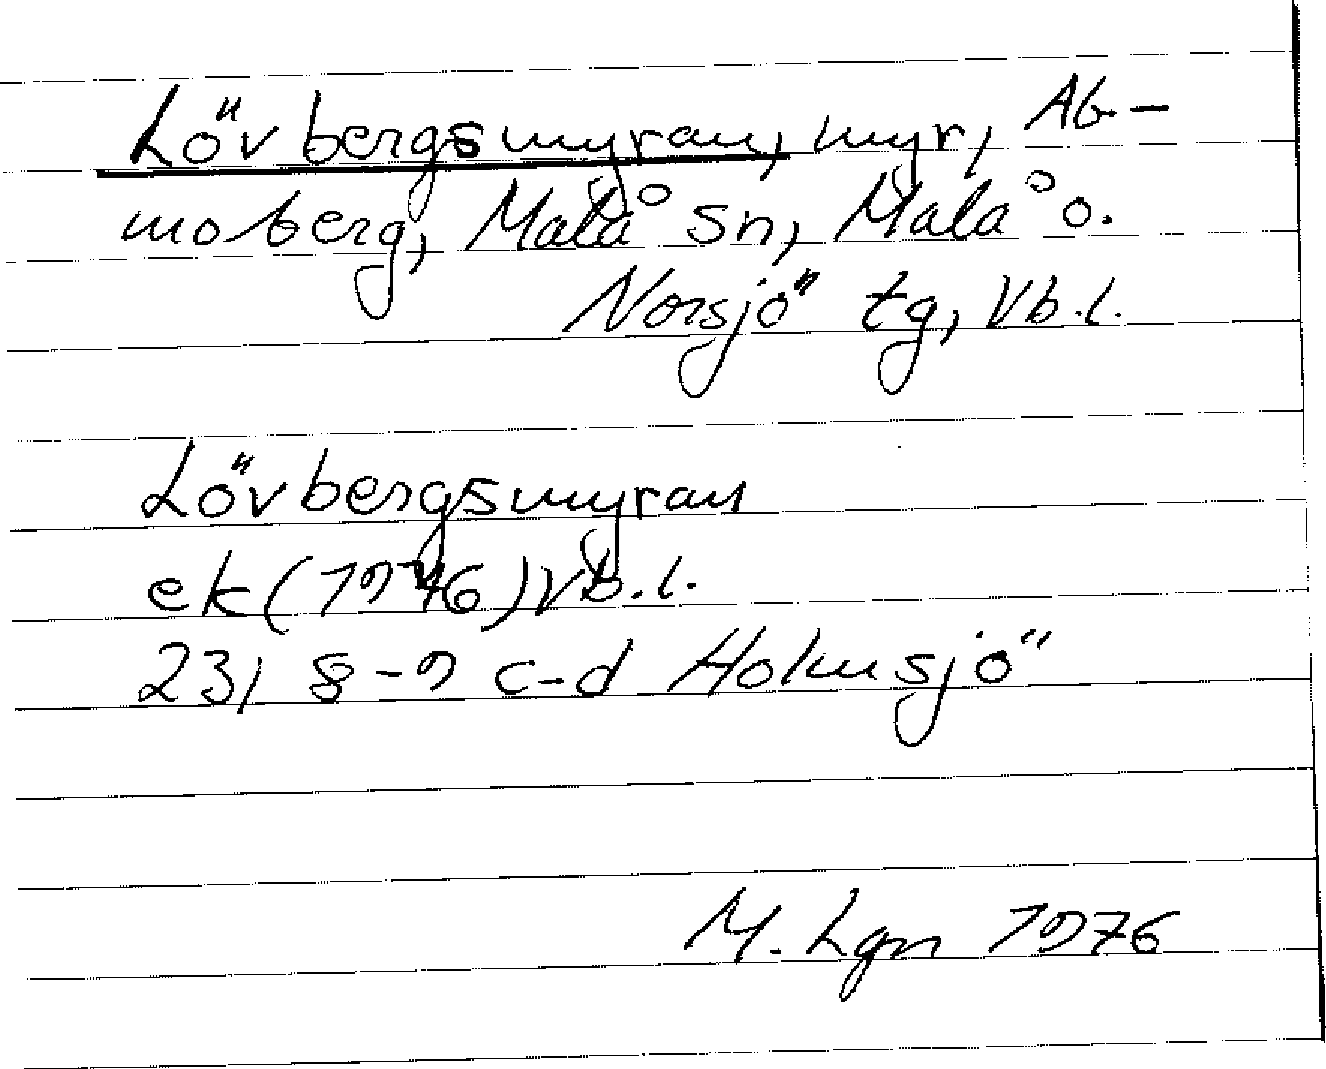 Lövbergsmyran, myr, Ab-
moberg, Malå sn, Malå o.
Norsjö tg, Vb.l.
Lövbergsmyran
ek(1946)Vb.l.
23I 8-9 c-d Holmsjö
M. Lgn 1976